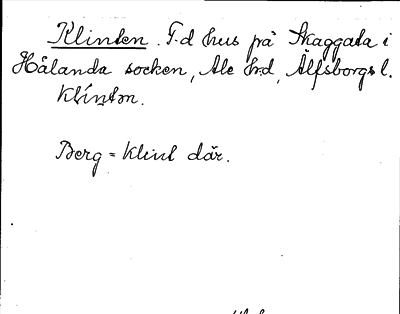 Klinten. F.d hus på Skaggata i
Hålanda socken, Ale hd, Älfsborgs l.
Klíntən.
Berg = klint där.